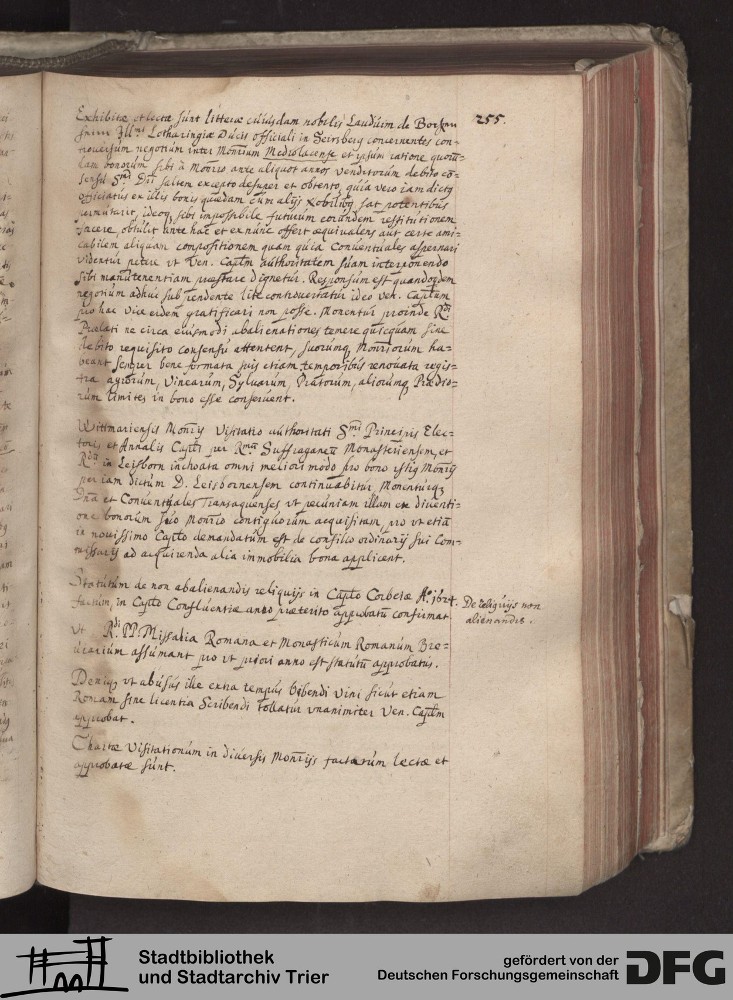 255.
Exhibitæ et lectæ sunt litteræ cuiusdam nobilis Laudium de
Illmi Lotharingiæ Ducis officiali in Seirsberg concernentes con=
trouersum negotium inter Monrium Mediolacense et ipsum ratione quorū=
dam bonorum sibi à Monrio ante aliquot annos venditorum debito cō=
sensu Smi Dni saltem excepto desuper et obtento, quia vero iam dictꝰ
officiatus ex illis bonis quædam cum alijs Nobilibꝰ sat potentibus
permutarit, ideoq, sibi impossibile futurum eorundem restitutionem
facere, obtulit ante hac et ex nunc offert æquivalens aut certe ami=
cabilem aliquam compositionem quam quia Conuentuales aspernari
videntur petere vt Ven. Captm authoritatem suam interponendo
sibi manutenentiam præstare dignetur. Responsum est quandoqdem
negotium adhuc sub pendente lite controuertatur ideo ven. Captum
pro hac vice eidem gratificari non posse. Monentur proinde Rdi
Prælati ne circa eiusmodi abalienationes temere quicquam sine
debito requisito consensu attentent, suorumq, Monriorum ha=
beant semper bene formata suis etiam temporibus renouata regis=
tra agrorum, vinearum, Syluarum, Pratorum, aliorumq, Prædio=
rum limites in bono esse conseruent.
Wittmariensis Monrij Visitatio authoritati Smi Principis Elec=
toris et Annalis Captli per Rmū Suffraganeū Monasteriensem, et
Rdū in Leisborn inchoata omni meliori modo pro bono istiꝰ Monrij
per iam dictum D. Leisbornensem continuabitur Monenturq,
Dna et Conuentuales Transaquenses vt pecuniam illam ex diuenti=
one bonorum suo Monrio contiguorum acquisitam, pro vt etiā
in nouissimo Captlo demandatum est de consilio ordinarij sui Com=
missarij ad acquirenda alia immobilia bona applicent.
Statutum de non abalienandis reliquijs in Captlo Corbeiæ Aº. 1624.
factum, in Captlo Confluentiæ anno præterito approbatū confirmat.
De reliquijs non
alienandis.
Vt Rdi PP. Missalia Romana et Monasticum Romanum Bre=
uiarium assumant pro vt priori anno est statutū approbatus.
Deniq, vt abusus ille extra tempus bibendi vini sicut etiam
Romam sine licentia Scribendi tollatur vnanimiter Ven. Captlm
approbat.
Chartæ Visitationum in diuersis Monrijs factarum lectæ et
approbatæ sunt.
Stadtbibliothek
und Stadtarchiv Trier
gefördert von der
Deutschen Forschungsgemeinschaft
DFG